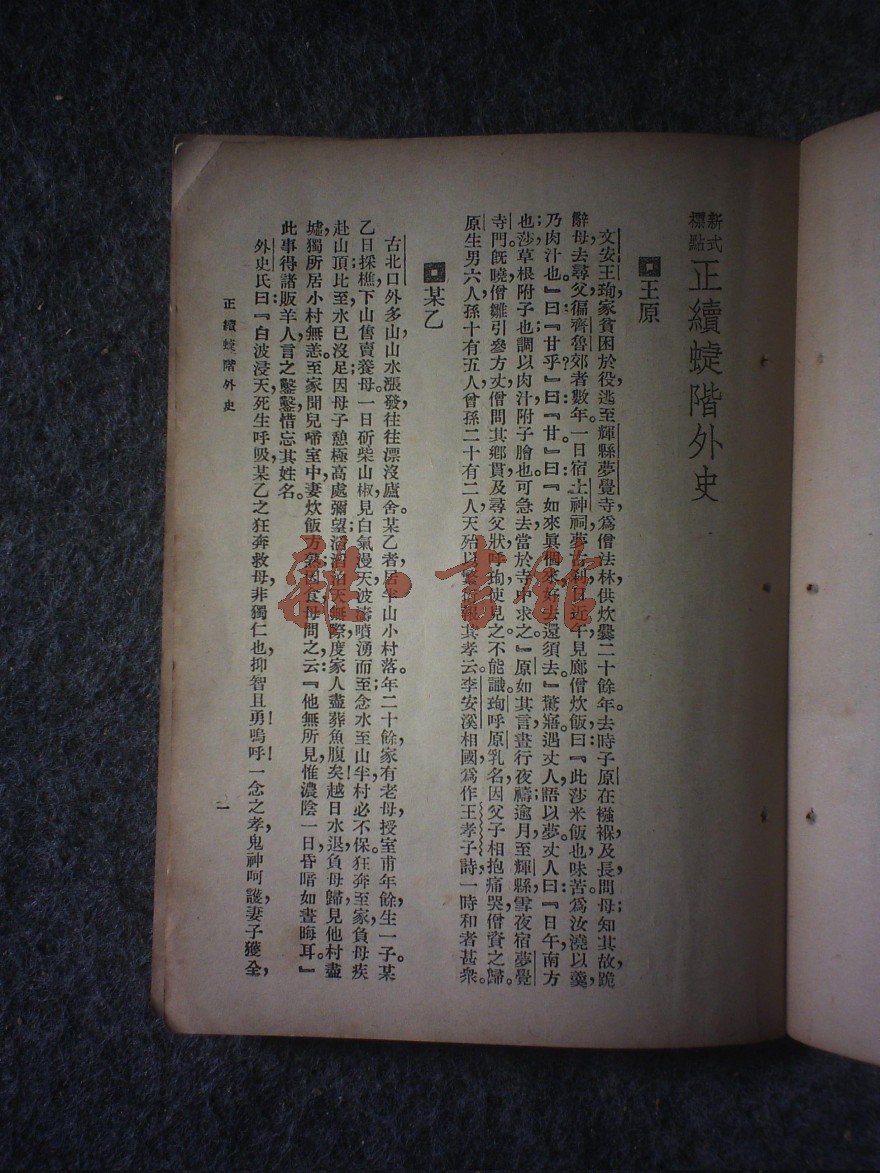 新式標點 正續蜨階外史
王原
文安王珣家貧困於役，逃至輝縣夢覺寺，爲僧法林供炊爨二十餘年。去時子原在襁褓，及長問母；知其故，跪
辭母去尋父，徧齊魯郊者數年。一日宿土神祠，夢古刹，日近午，見廊僧炊飯，曰：『此莎米飯也，味苦。爲汝澆以羹，
乃肉汁也。』曰：『甘乎？』曰：『甘。』曰：『如來眞個來，好去還須去。』驚寤。遇丈人，語以夢。丈人曰：『日午，南方
也；莎草根，附子也；調以肉汁，附子膾也。可急去，當於寺中求之。』原如其言，晝行夜禱；逾月，至輝縣，雪夜宿夢覺
寺門。旣曉，僧雛引參方丈，僧問其鄉貫及尋父狀，呼珣使見之，不能識。珣呼原乳名，因父子相抱痛哭，僧資之歸。
原生男六人，孫十有五人，曾孫二十有二人，天殆以繁衍報其孝云。李安溪相國爲作王孝子詩，一時和者甚衆。
某乙
古北口外多山，山水漲發，往往漂沒廬舍。某乙者，居半山小村落。年二十餘，家有老母，授室甫年餘，生一子。某
乙日採樵，下山售賣養母。一日斫柴山椒，見白氣漫天，波濤噴湧而至；念水至山半，村必不保。狂奔至家，負母疾
赴山頂，比至，水已沒足。因母子憩極高處，彌望滔滔，滔天無際，度家人盡葬魚腹矣！越日水退，負母歸，見他村盡
墟，獨所居小村無恙。至家聞兒啼室中，妻炊飯方熟，因食母。問之，云：『他無所見，惟濃陰一日，昏暗如晝晦耳。』
此事得諸販羊人，言之鑿鑿，惜忘其姓名。
外史氏曰：『白波浸天，死生呼吸，某乙之狂奔救母，非獨仁也，抑智且勇！嗚呼！一念之孝，鬼神呵護，妻子獲全，
正續蜨階外史
一